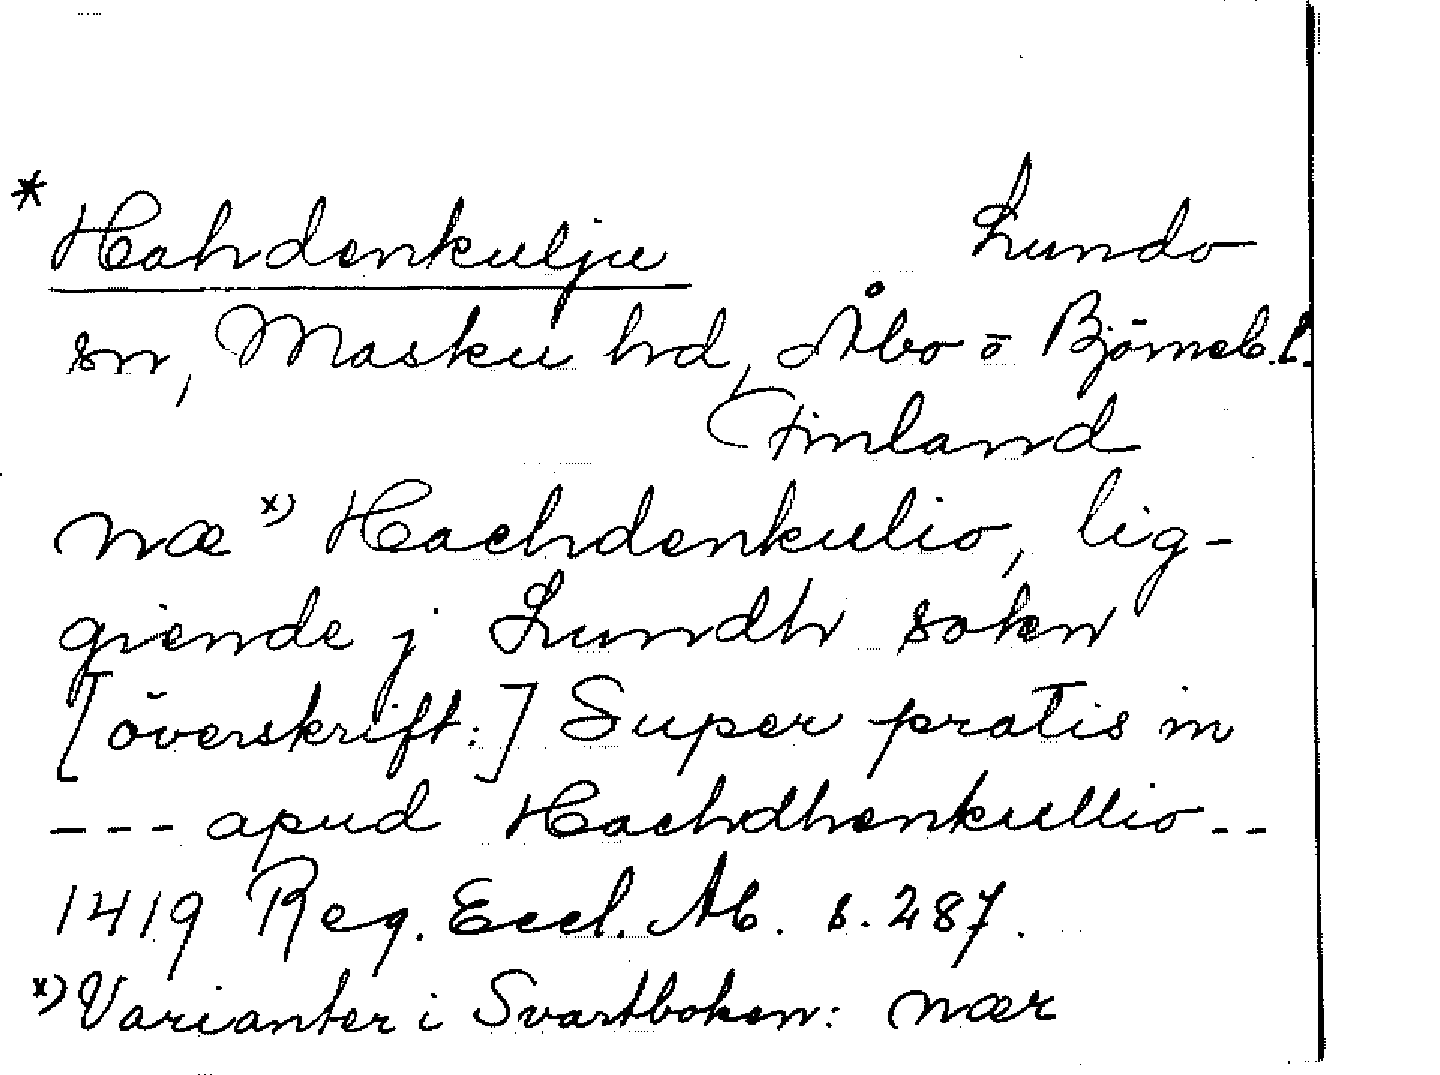 * Hahdenkulju Lundo
sn, Masku hd, Åbo o Björneb. l.
Finland
næ x) Hachdenkulio, lig-
giende j Lundh sokn
[överskrift:] Super pratis in
--- apud Hachdhenkullio --
1419 Reg. Eccl. Ab. s. 287.
x) Varianter i Svartboken: nær